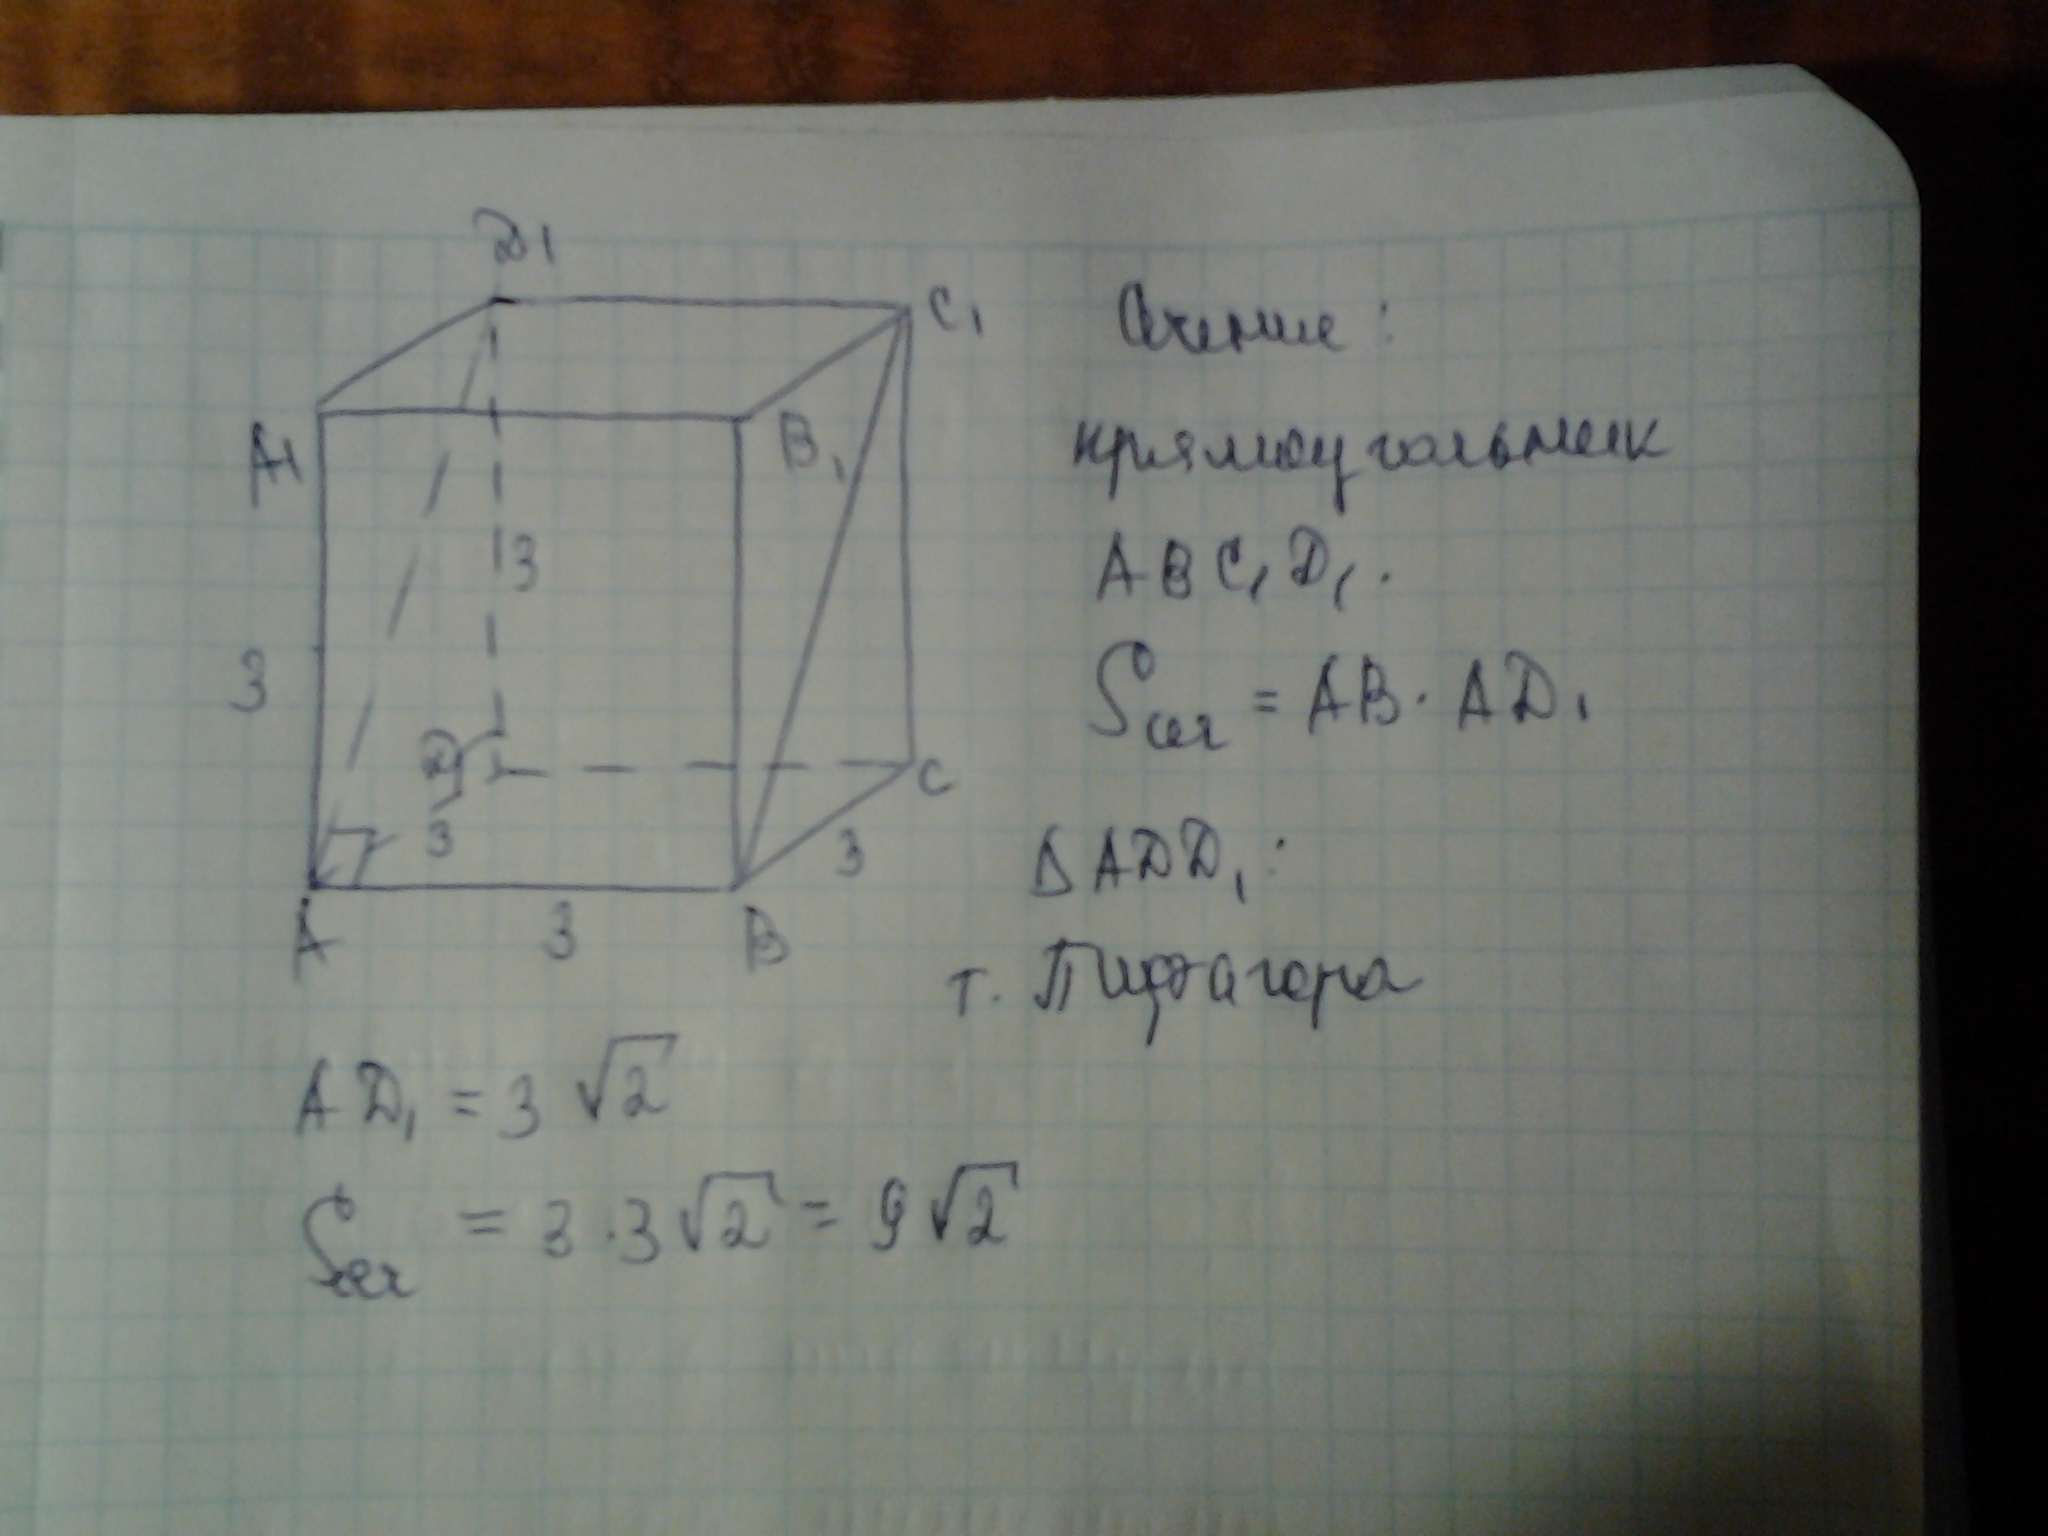 D1
C1
A1
B1
3
3
D
C
3
3
A
3
B
Сечение:
прямоугольник
ABC1D1.
Sсеч = AB · AD1
Δ ADD1:
т. Пифагора
AD1 = 3√2
Sсеч = 3 · 3√2 = 9√2